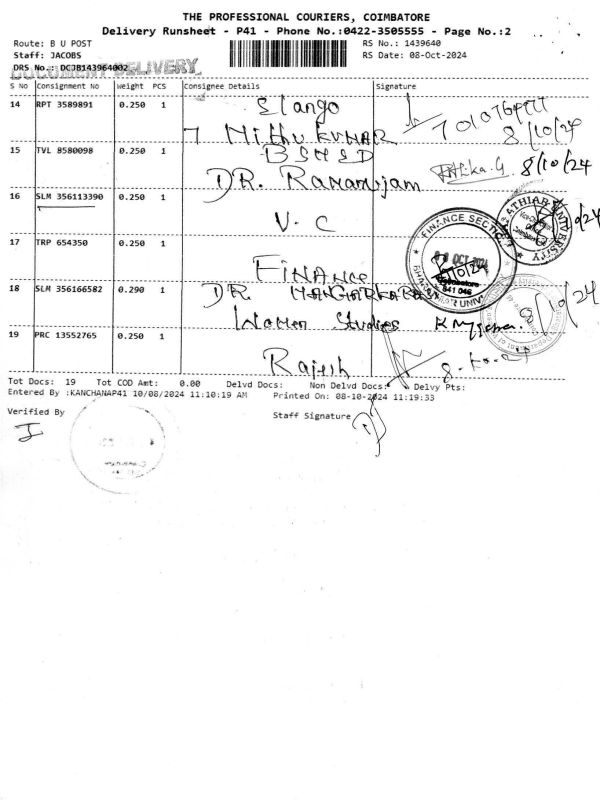 THE PROFESSIONAL COURIERS, COIMBATORE
Delivery Runsheet - P41 - Phone No.:0422-3505555 - Page No.:2
Route: B U POST
RS No.: 1439640
Staff: JACOBS
RS Date: 08-Oct-2024
DRS No.: DCJB143964002
DOCUMENT DELIVERY
S No Consignment No Weight PCS Consignee Details Signature
14 RPT 3589891 0.250 1 Elango
7010764977
7 Nithu Kumar 8/10/24
15 TVL 8580098 0.250 1 BSMED
8/10/24
DR. Ramanujam
16 SLM 356113390 0.250 1 V. C
FINANCE SECTION
08 OCT 2024
641 046
17 TRP 654350 0.250 1
Finance
18 SLM 356166582 0.290 1 DR.
8/10/24
Women Studies
19 PRC 13552765 0.250 1 Rajesh
8-10-24
Tot Docs: 19 Tot COD Amt: 0.00 Delvd Docs: Non Delvd Docs: Delvy Pts:
Entered By :KANCHANAP41 10/08/2024 11:10:19 AM Printed On: 08-10-2024 11:19:33
Verified By
Staff Signature